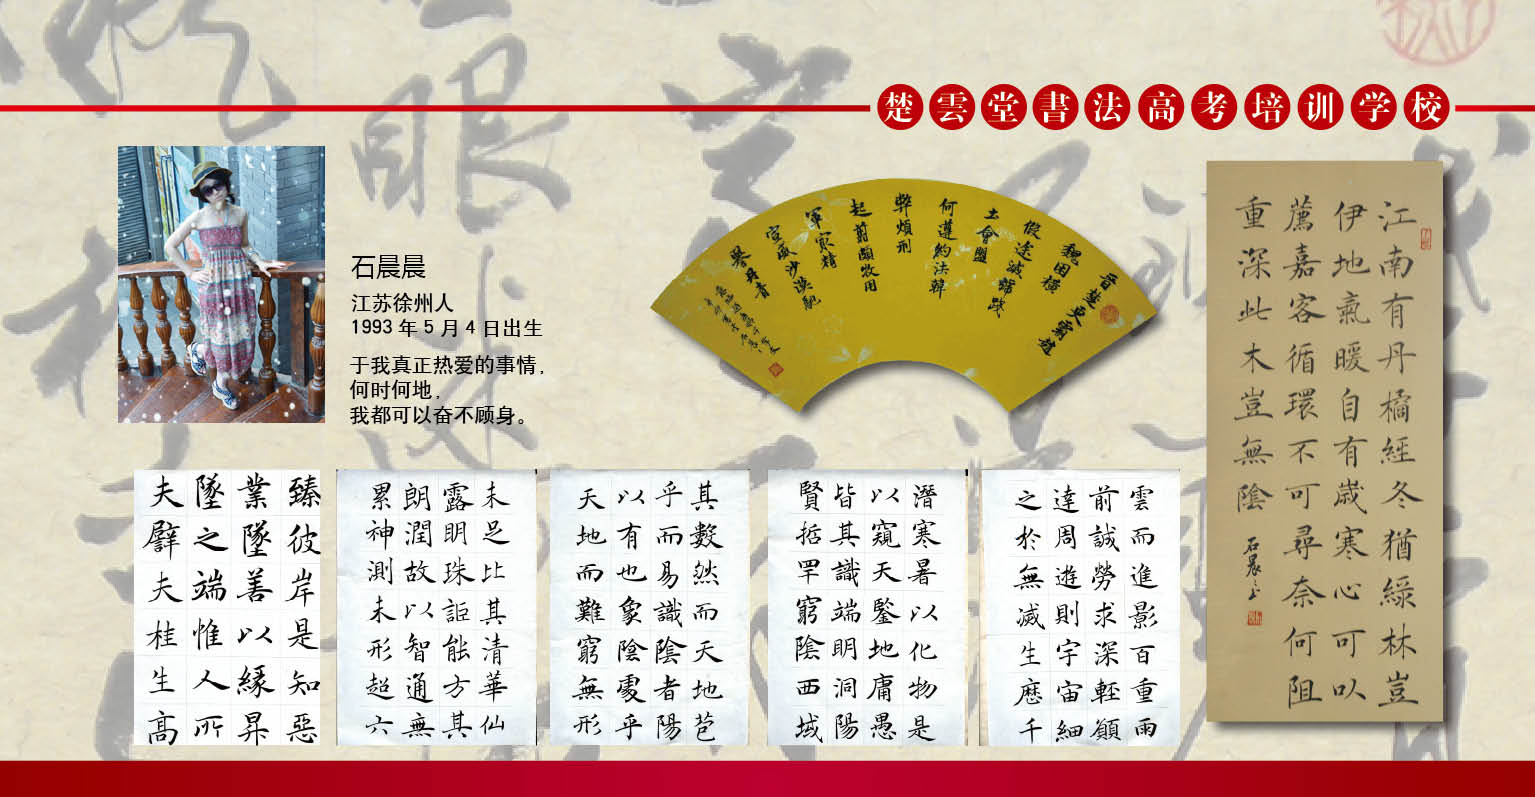 楚雲堂書法高考培训学校
石晨晨
江苏徐州人
1993年5月4日出生
于我真正热爱的事情，
何时何地，
我都可以奋不顾身。
晋楚更霸趙
魏困横
假途滅虢踐
土會盟
何遵約法韓
弊煩刑
起翦頗牧用
軍最精
宣威沙漠馳
譽丹青
江南有丹橘經冬猶綠林豈
伊地氣暖自有歲寒心可以
薦嘉客循環不可尋奈何阻
重深此木豈無陰
石晨
臻彼岸是知惡
業墜善以緣昇
墜之端惟人所
夫譬夫桂生高
未足比其清華仙
露明珠詎能方其
朗潤故以智通無
累神測未形超六
其數然而天地苞
乎而易識陰者陽
以有也象陰處乎
天地而難窮無形
潛寒暑以化物是
以窺天鑒地庸愚
皆其識端明洞陽
賢哲罕窮陰西域
雲而進影百重雨
前誠勞求深輕願
達周遊則宇宙細
之於無滅生歷千